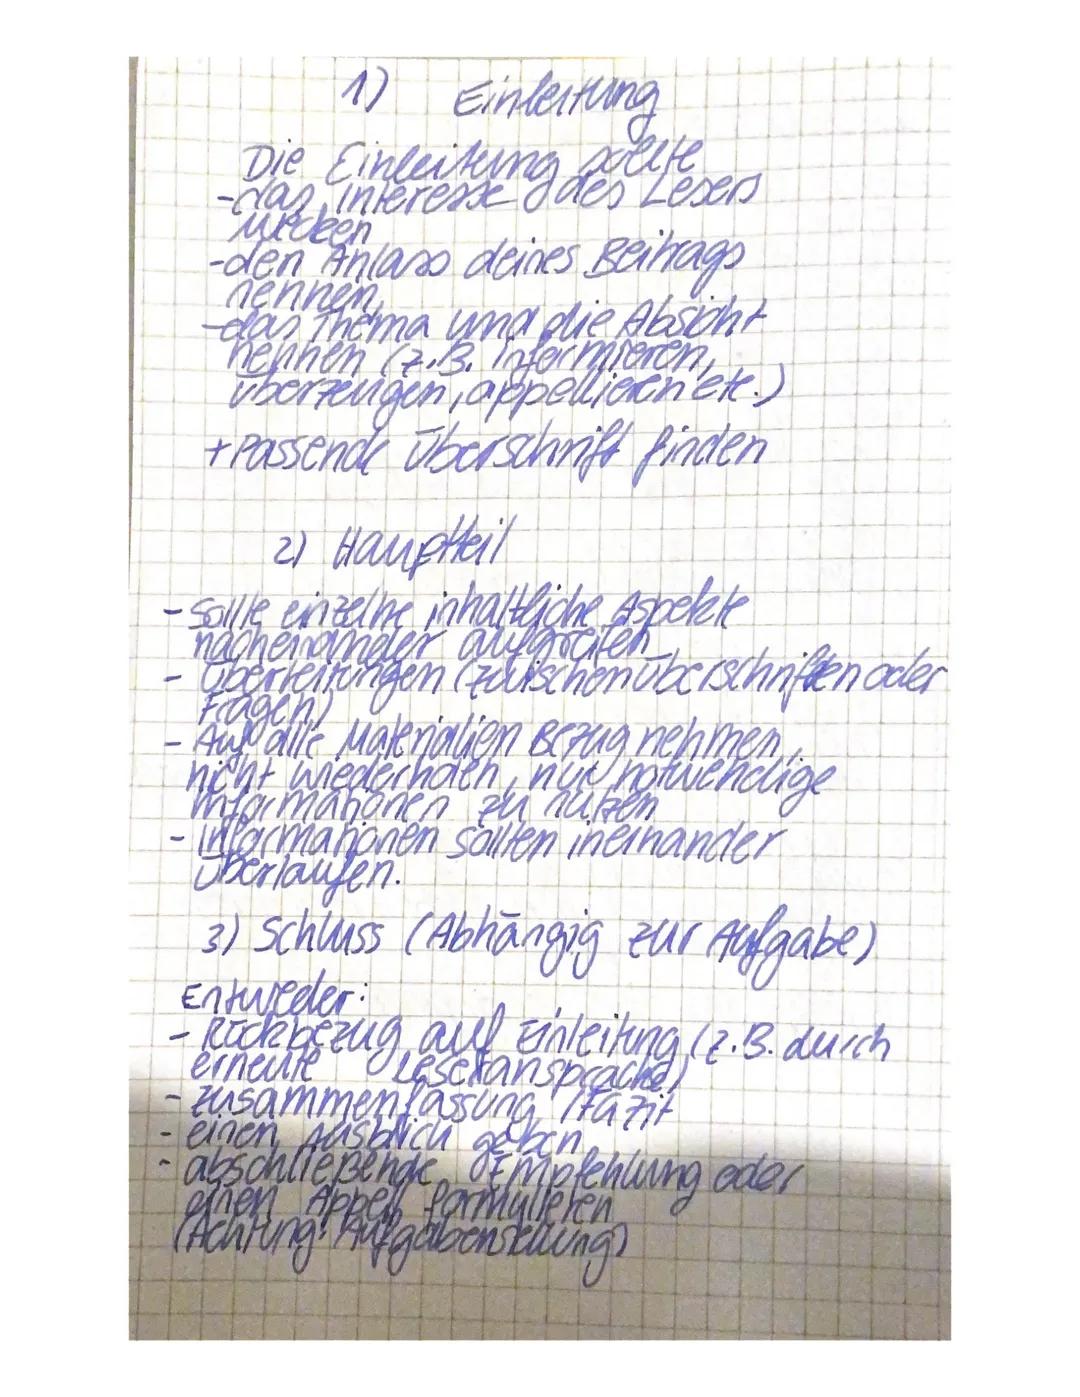 1) Einleitung
Die Einleitung sollte
-das interesse des Lesers
wecken
-den Anlass deines Beitrags
nennen,
-das Thema und die Absicht
nennen (z.B. informieren,
überzeugen, appellieren etc.)
+Passende Überschrift finden
2) Hauptteil
- sollte einzelne inhaltliche Aspekte
nacheinander aufgreifen
- Überleitungen (Zwischenüberschriften oder
Fragen)
- Auf alle Materialien Bezug nehmen,
nicht wiederholen, nur notwendige
informationen zu nutzen
- informationen sollten ineinander
überlaufen.
3) Schluss (Abhängig zur Aufgabe)
Entweder:
- Rückbezug auf Einleitung (z.B. durch
erneute Leseransprache)
- Zusammenfassung /Fazit
- einen Ausblick geben
- abschließende Empfehlung oder
einen Appell formulieren
(Achtung: Aufgabenstellung)